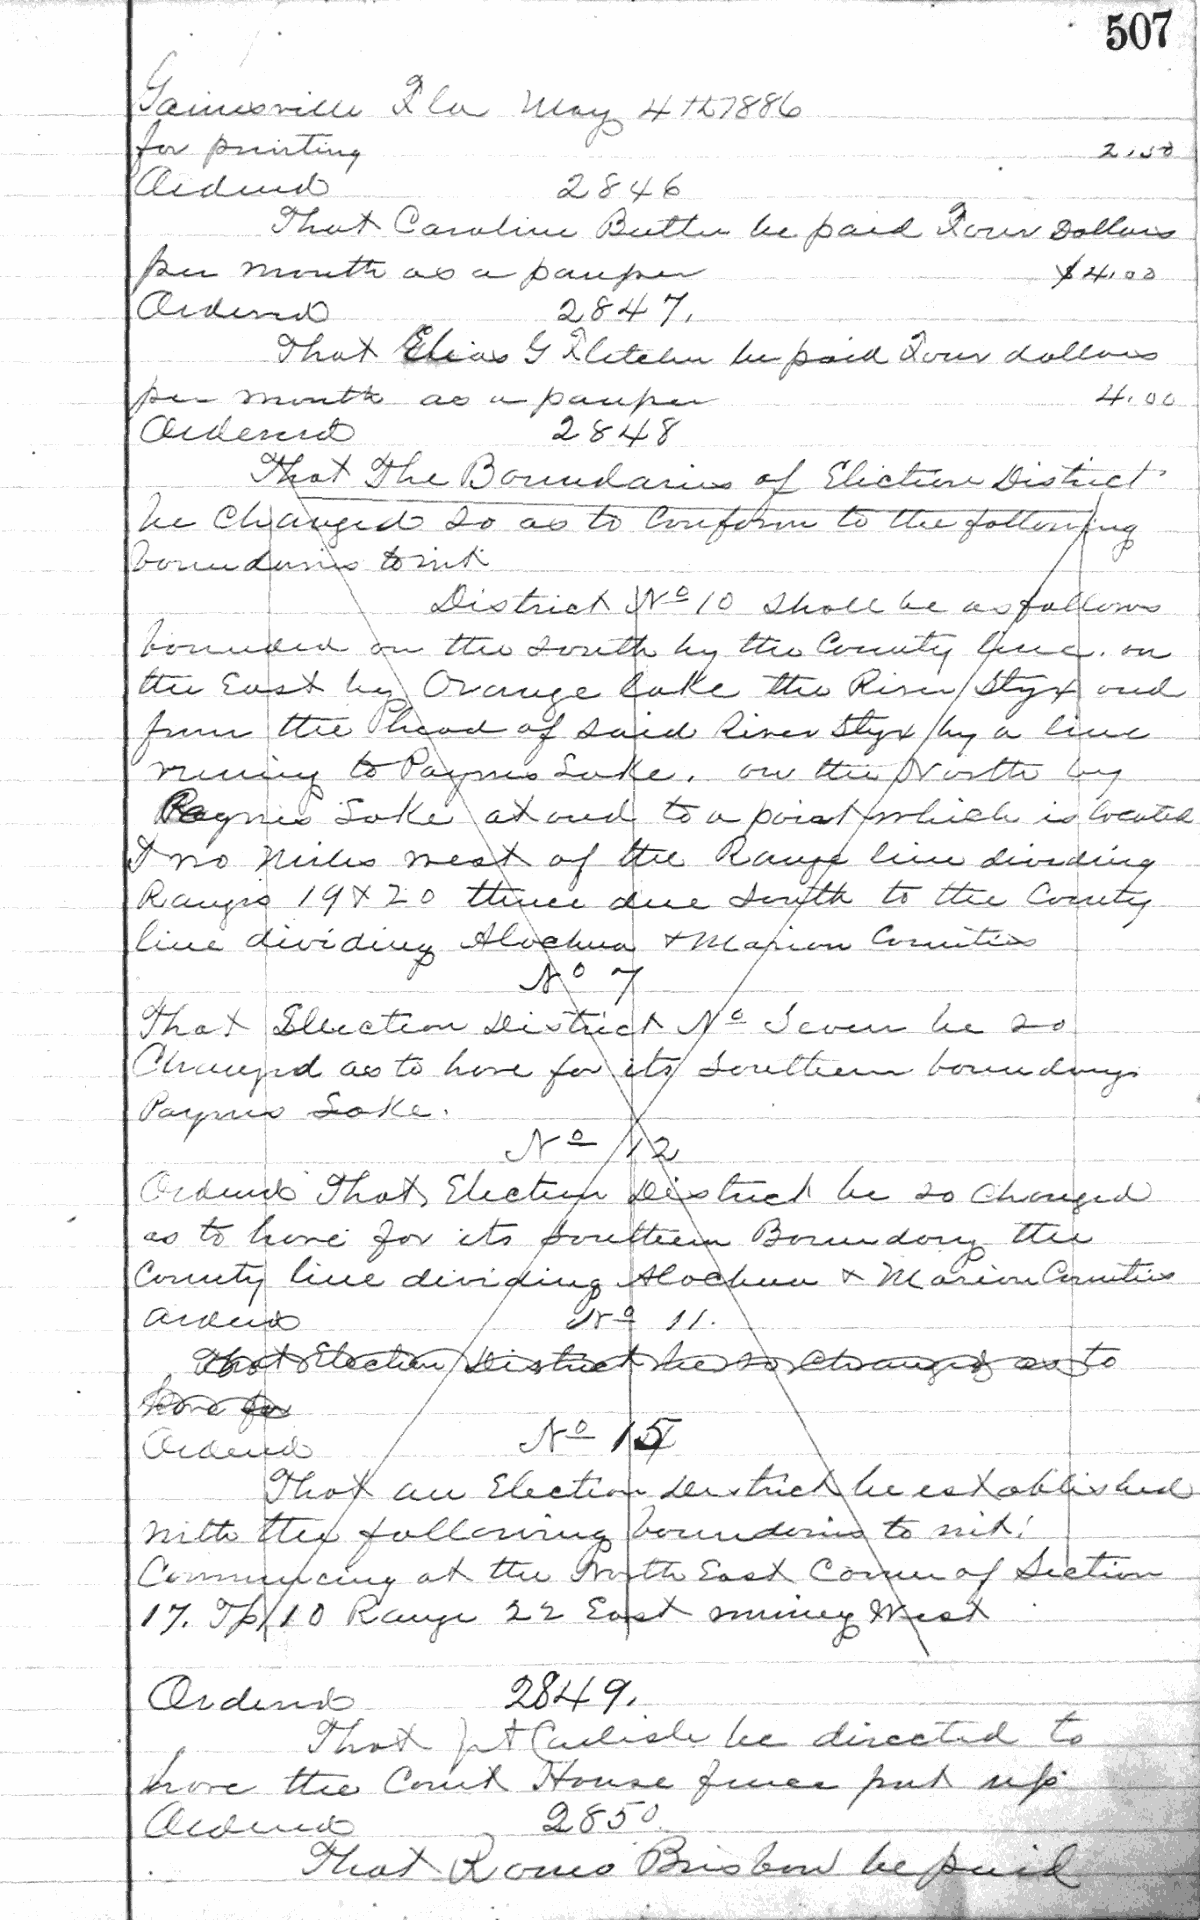 507
Gainesville Fla May 4th 1886
for printing 2.50
Ordered 2846
That Caroline Butler be paid Four Dollars
per month as a pauper $4.00
Ordered 2847.
That Elias G Fletcher be paid Four dollars
per month as a pauper 4.00
Ordererd 2848
That The Boundaries of Election District
be Changed so as to Conform to the following
boundaries to wit
District No 10 Shall be as follows
bounded on the South by the County line. on
the East by Orange Lake the River Styx and
from the head of said River Styx by a line
runing to Paynes Lake. on the North by
Paynes Lake and to a point which is located
Two Miles west of the Range line dividing
Ranges 19 & 20 thence due South to the County
line dividing Alachua & Marion Counties
No 7
That Election District No Seven be so
Changed as to have for its Southern boundary
Paynes Lake.
No 12
Ordered That Election District be so Changed
as to have for its Southern Boundary the
County line dividing Alachua & Marion Counties
Ordered No 11.
That Election District be so Changed as to
have for
Ordered No 15
That an Election District be established
with the following boundaries to wit:
Commencing at the North East Corner of Section
17. Tp 10 Range 22 East runing West
Ordered 2849.
That Carlisle be directed to
have the Court House fence put up
Ordered 2850.
That Romeo Brisbow be paid